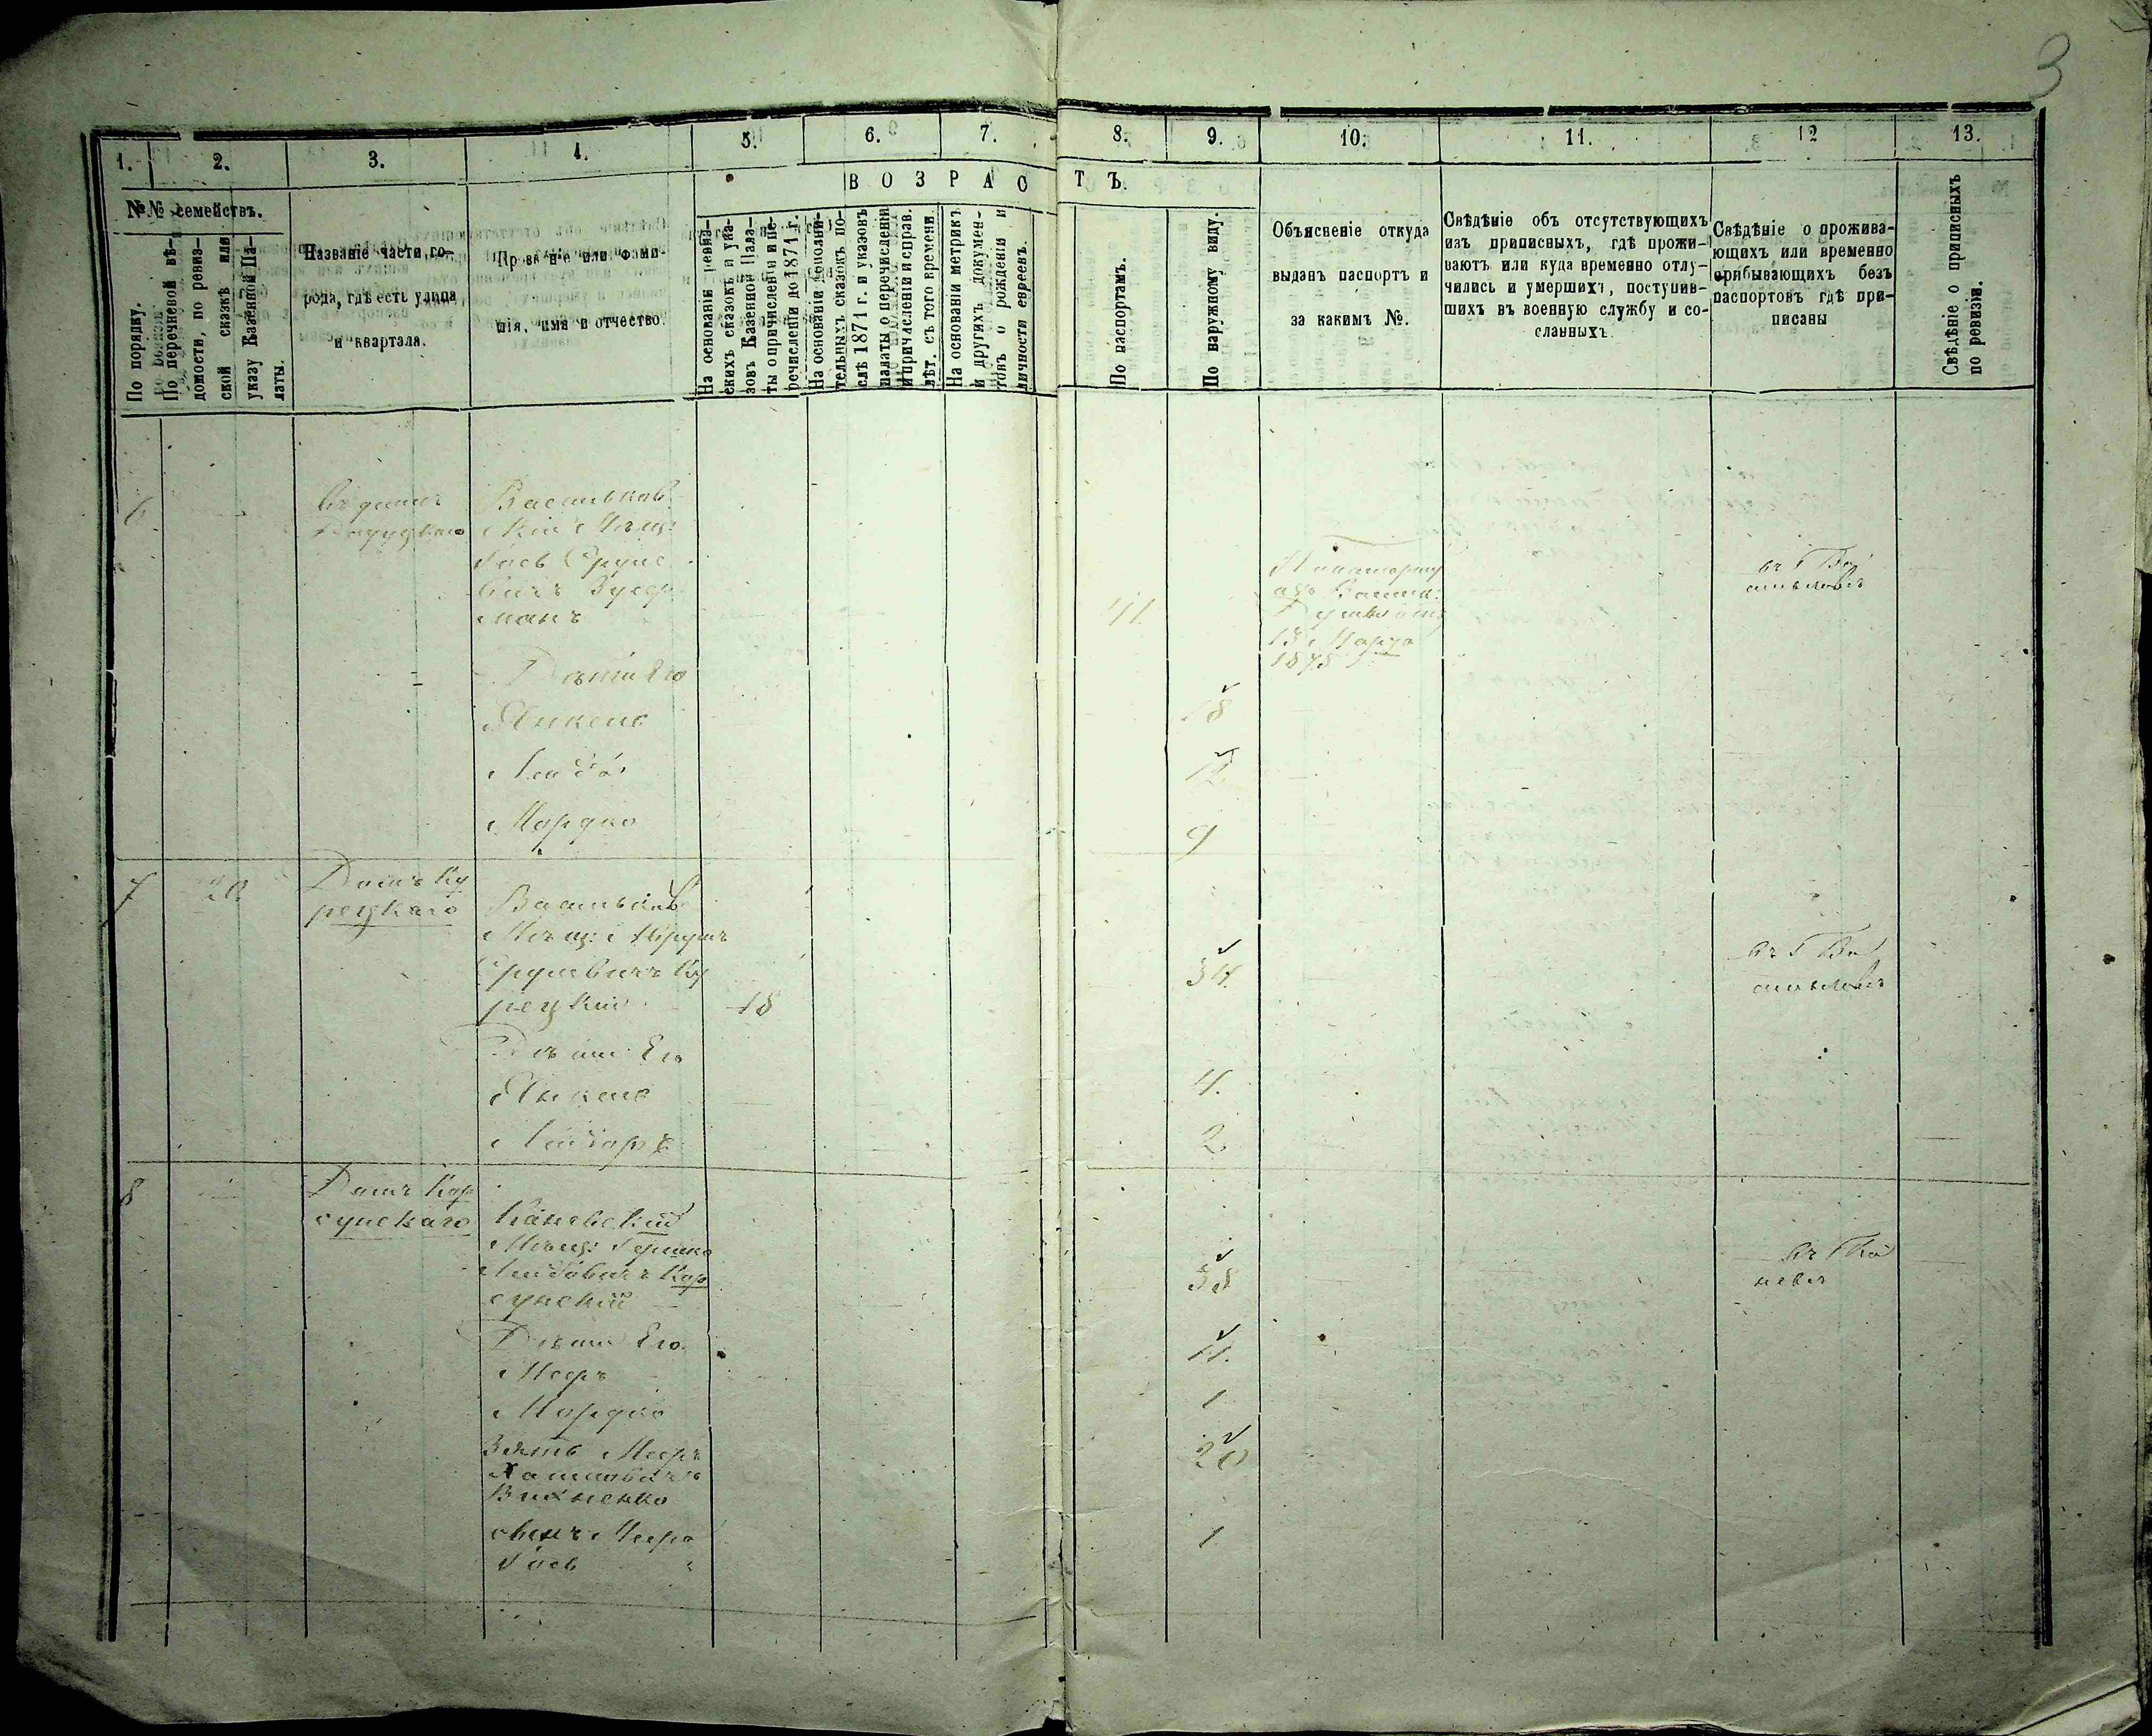 3
1. 2. 3. 4. 5. 6. 7. 8. 9. 10. 11. 12 13.
ВОЗРАСТЪ.
№№ семействъ.
По порядку.
По перечневой вѣ-
домости, по ревиз-
ской сказкѣ или
указу Казенной Па-
латы.
Названіе части го-
рода, гдѣ есть улица
и квартала.
Прозваніе или фами-
лія, имя и отчество.
На основаніи ревиз-
скихъ сказокъ и ука-
зовъ Казенной Пала-
ты о причисленіи и пе-
речисленіи до 1871 г.
На основаніи дополни-
тельныхъ сказокъ по-
слѣ 1871 г. и указовъ
палаты о перечисленіи
и причисленіи и справ.
лѣт. съ того времени.
На основаніи метрикъ
и другихъ докумен-
товъ о рожденіи и
личности евреевъ.
По паспортамъ.
По наружному виду.
Объясненіе откуда
выданъ паспортъ и
за какимъ №.
Свѣдѣніе объ отсутствующихъ
изъ приписныхъ, гдѣ прожи-
ваютъ или куда временно отлу-
чились и умершихъ, поступив-
шихъ въ военную службу и со-
сланныхъ.
Свѣдѣніе о прожива-
ющихъ или временно
прибывающихъ безъ
паспортовъ гдѣ при-
писаны
Свѣдѣніе о приписныхъ
по ревизіи.
6
Васильков
скій Мѣщ:
Іось Сруле
вичъ
манъ
41.
13 Марта
1875
въ г Ва
сильковѣ
Дѣти Его
Янкель 18
Лейба 12
Мордко 9
7 20. Домъ Ку
рецкаго
Васильков
Мѣщ:
Срулевичъ Ку
рецкій 18 34.
въ г Ва
сильковѣ
Дѣти Его
Янкель 4.
2.
8 Домъ Кор
сунскаго
Каневскій
Мѣщ: Гершко
Лейбовичъ Кор
сунскій 38
въ г Ка
невѣ
Дѣти Его
Мееръ 11.
Мордко 1
Зять Мееръ 20
Вихненко
сынъ Меера
Іось 1